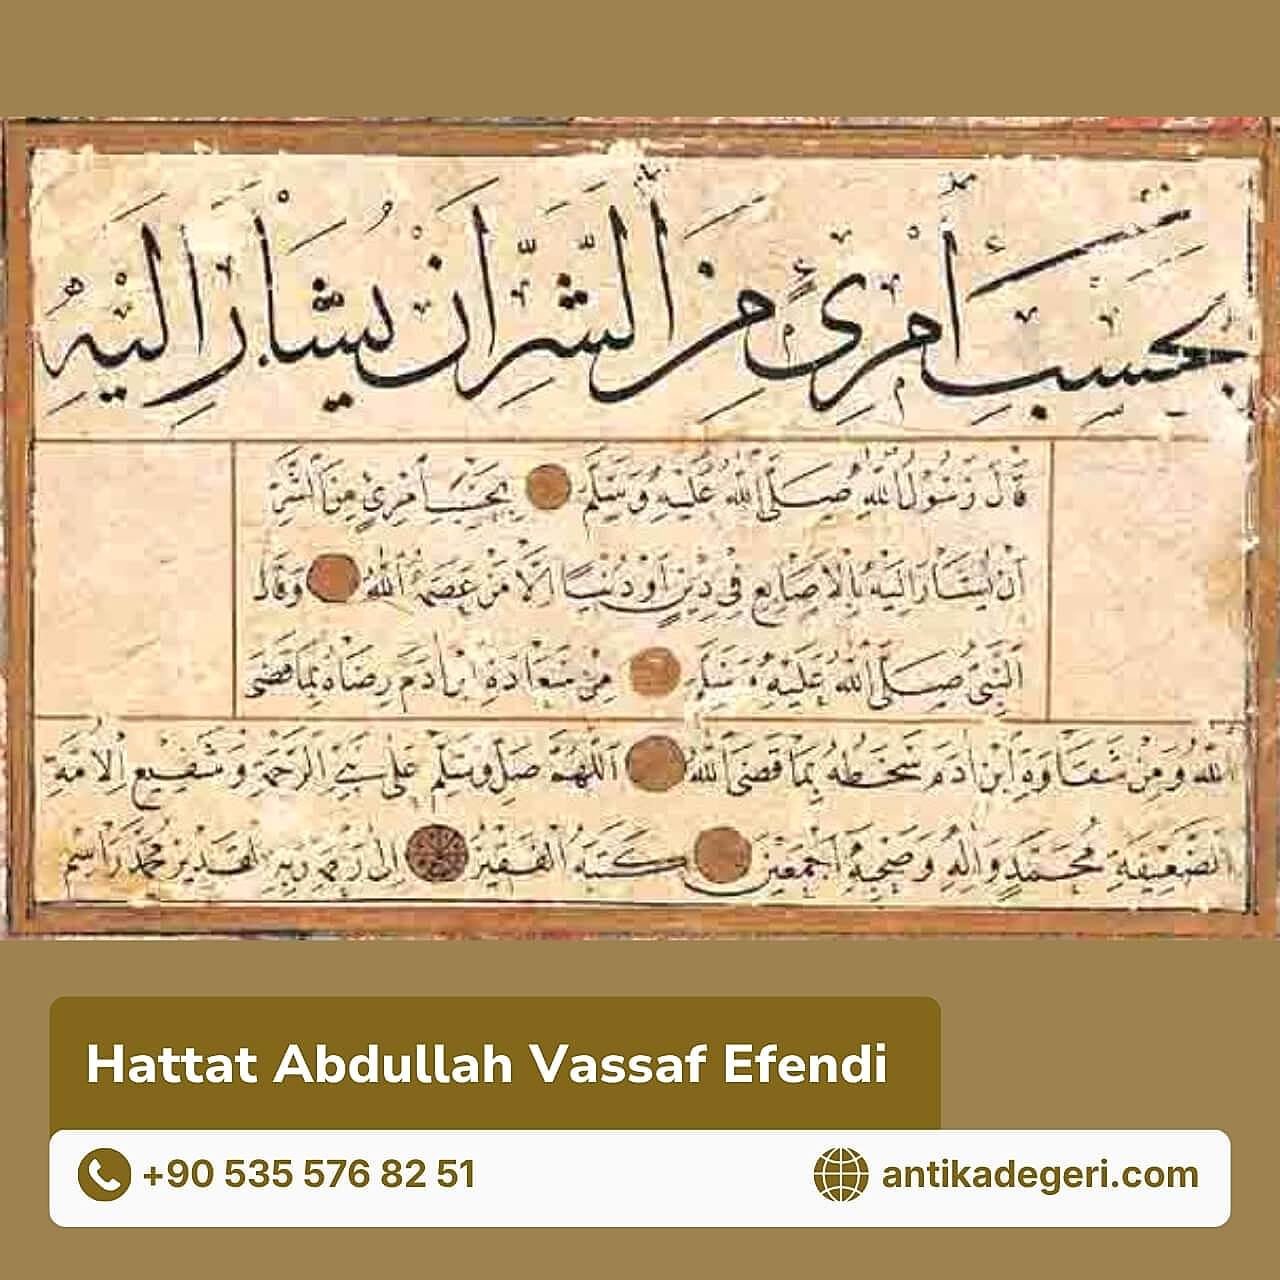 بِحَسْبِ أَمْرِئٍ مِنَ الشَّرِّ أَنْ يُشَارَ إِلَيْهِ
قَالَ رَسُولُ اللهِ صَلَّى اللهُ عَلَيْهِ وَسَلَّمَ بِحَسْبِ أَمْرِئٍ مِنَ الشَّرِّ
أَنْ يُشَارَ إِلَيْهِ بِالْأَصَابِعِ فِي دِينٍ أَوْ دُنْيَا إِلَّا مَنْ عَصَمَهُ اللهُ وَقَالَ
النَّبِيُّ صَلَّى اللهُ عَلَيْهِ وَسَلَّمَ مِنْ سَعَادَةِ ابْنِ آدَمَ رِضَاهُ بِمَا قَضَى
اللهُ وَمِنْ شَقَاوَةِ ابْنِ آدَمَ سَخَطُهُ بِمَا قَضَى اللهُ اَللّٰهُمَّ صَلِّ وَسَلِّمْ عَلَى نَبِيِّ الرَّحْمَةِ وَشَفِيعِ الْأُمَّةِ
الضَّعِيفَةِ مُحَمَّدٍ وَآلِهِ وَصَحْبِهِ أَجْمَعِينَ كَتَبَهُ الْفَقِيرُ إِلَى رَحْمَةِ رَبِّهِ الْقَدِيرِ مُحَمَّد رَاسِم
Hattat Abdullah Vassaf Efendi
+90 535 576 82 51
antikadegeri.com